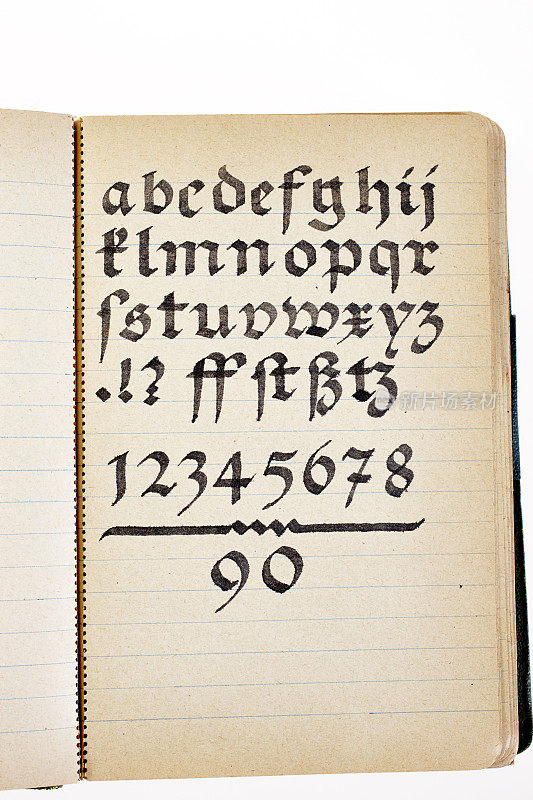 abcdefghij
klmnopqr
ſstuvwxyz
.!? ff ſt ß tz
12345678
90
新片场素材